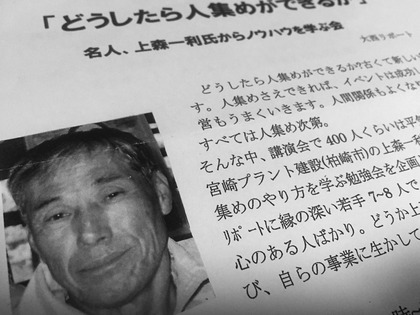 「どうしたら人集めができるか」
名人、上森一利氏からノウハウを学ぶ会
大西リポート
どうしたら人集めができるか?古くて新しい
す。人集めさえできれば、イベントは成功し
営もうまくいきます。人間関係もよくな
すべては人集め次第。
そんな中、講演会で400人くらいは平
宮崎プラント建設(柏崎市)の上森一
集めのやり方を学ぶ勉強会を企画
リポートに縁の深い若手7-8人で
心のある人ばかり。どうか上
び、自らの事業に生かして